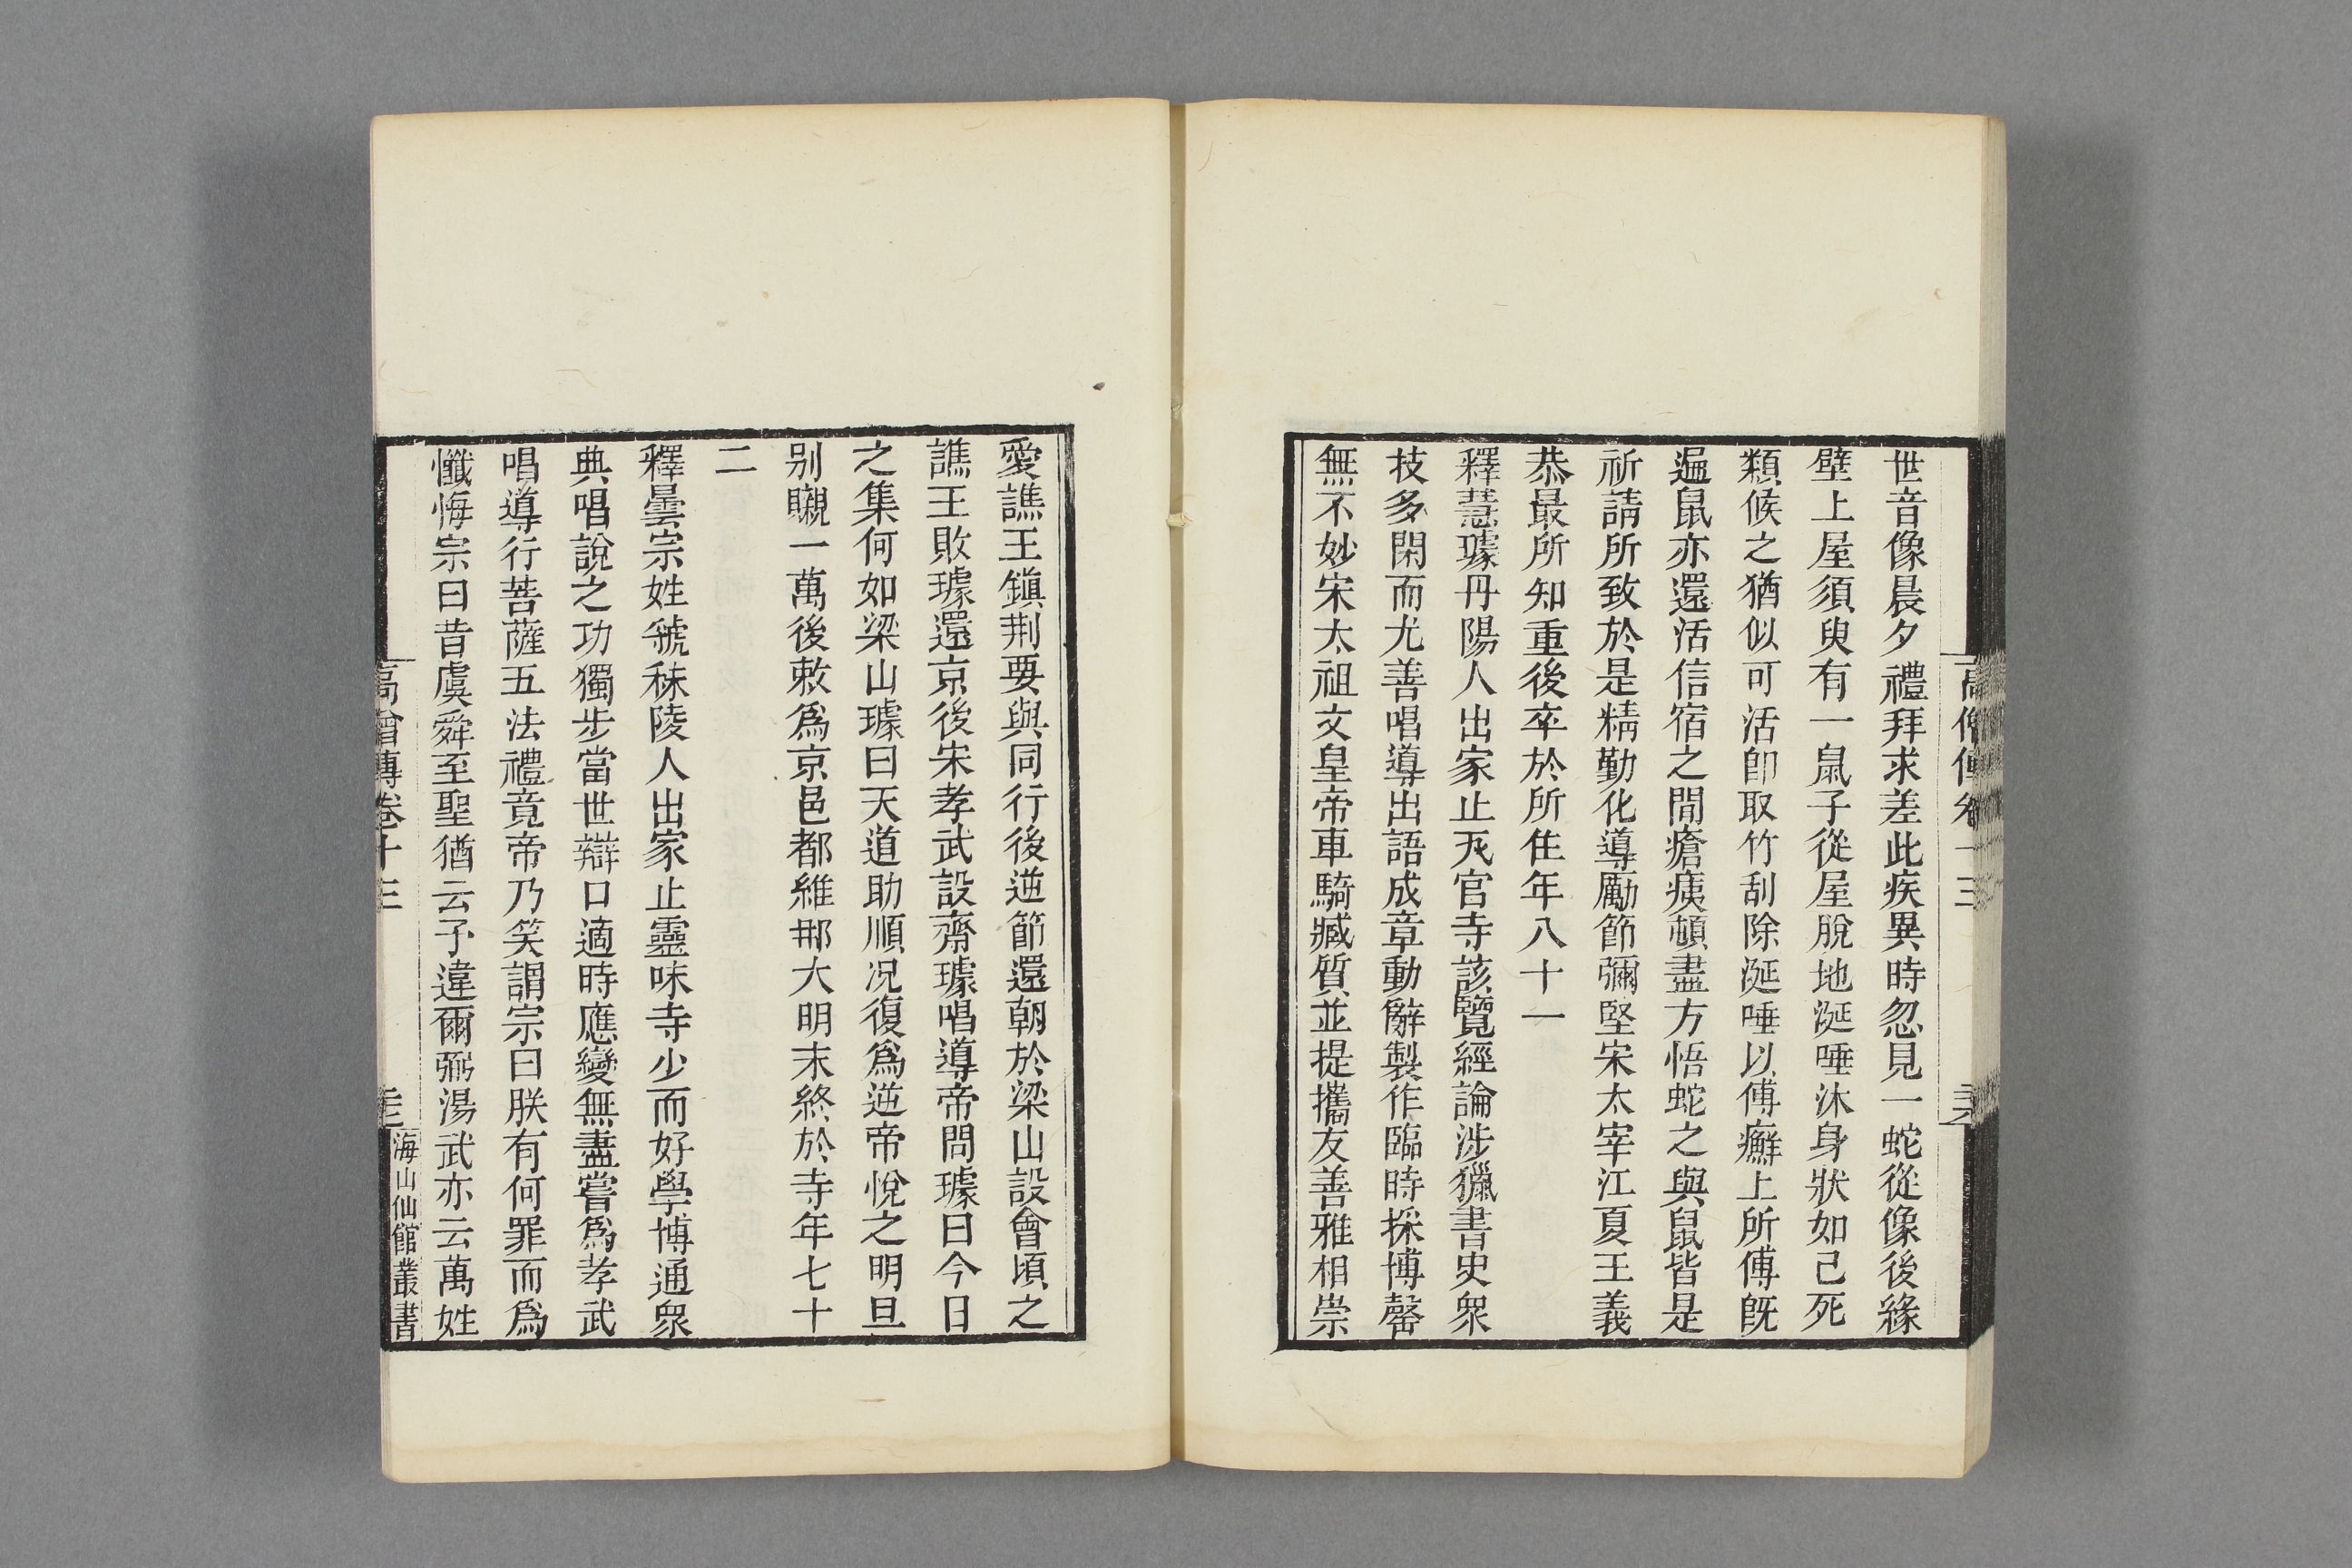 世音像晨夕禮拜求差此疾異時忽見一蛇從像後緣
壁上屋須臾有一鼠子從屋脫地涎唾沐身狀如己死
類候之猶似可活卽取竹刮除涎唾以傅癬上所傅旣
遍鼠亦還活信宿之間瘡痍頓盡方悟蛇之與鼠皆是
祈請所致於是精勤化導勵節彌堅宋太宰江夏王義
恭最所知重後卒於所住年八十一
釋慧璩丹陽人出家止瓦官寺該覽經論涉獵書史衆
技多閑而尤善唱導出語成章動辭製作臨時採博罄
無不妙宋太祖文皇帝車騎臧質並提攜友善雅相崇
愛譙王鎭荆要與同行後逆節還朝於梁山設會頃之
譙王敗璩還京後宋孝武設齋璩唱導帝問璩曰今日
之集何如梁山璩曰天道助順况復爲逆帝悅之明旦
别賵一萬後敕爲京邑都維那大明末終於寺年七十
二
釋曇宗姓虢秣陵人出家止靈味寺少而好學博通衆
典唱說之功獨步當世辯口適時應變無盡嘗爲孝武
唱導行菩薩五法禮竟帝乃笑謂宗曰朕有何罪而爲
懺悔宗曰昔虞舜至聖猶云予違爾弼湯武亦云萬姓
高僧傳卷十三
海山仙館叢書